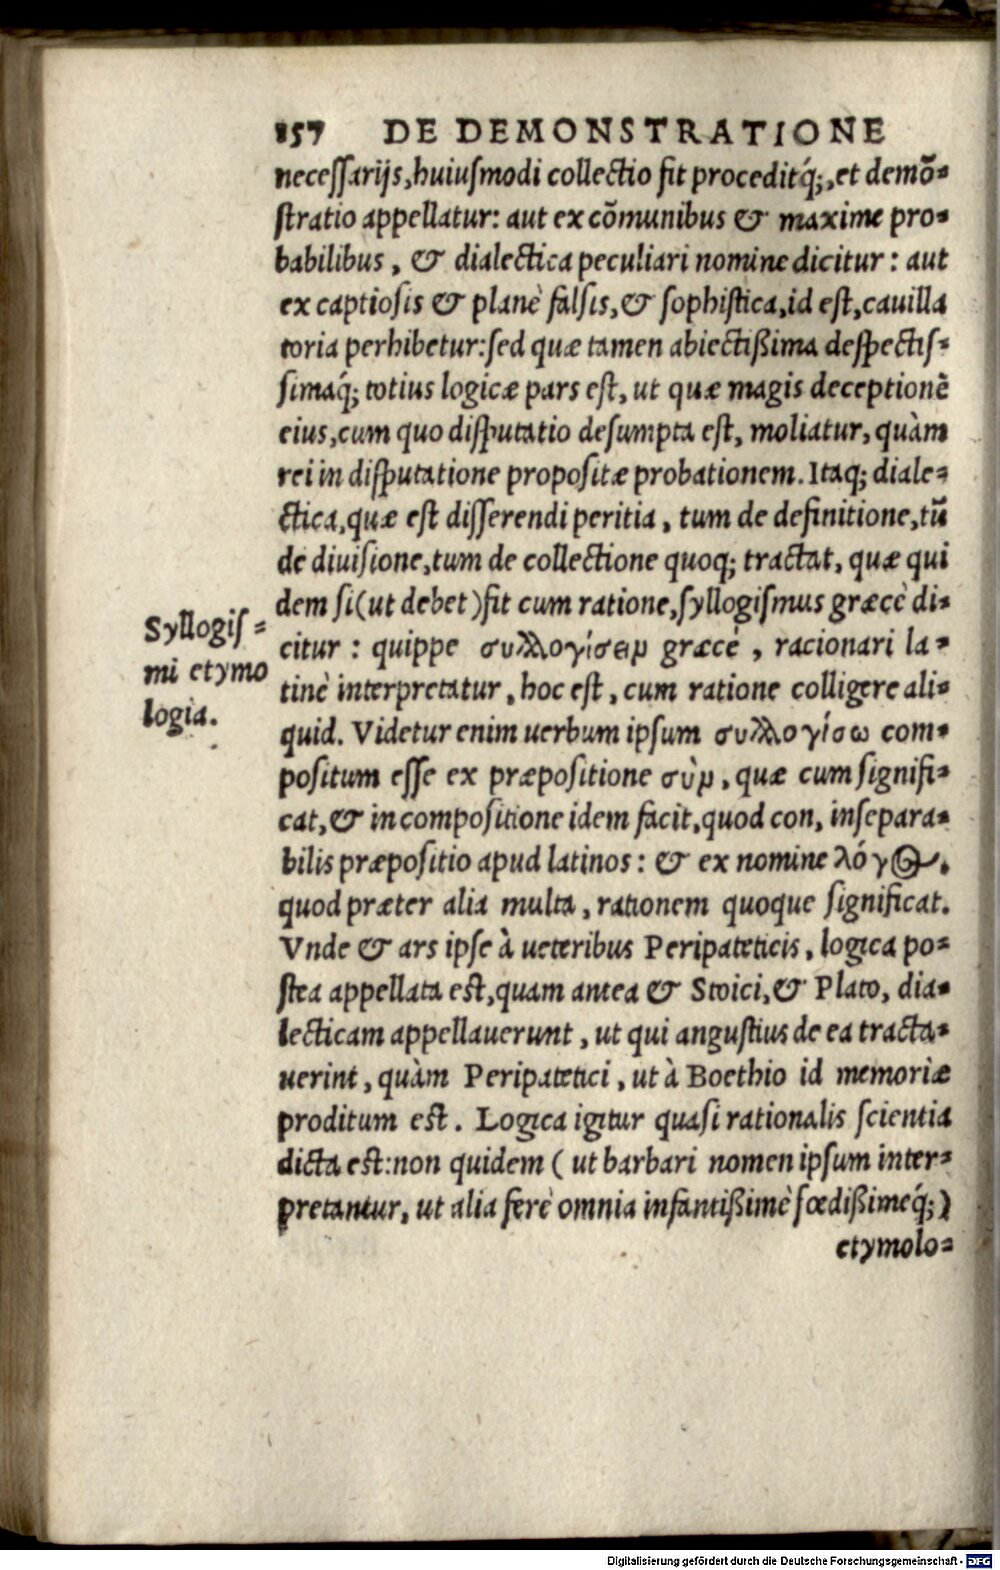 157 DE DEMONSTRATIONE
necessarijs, huiusmodi collectio fit proceditq́;, et demõ-
stratio appellatur: aut ex cõmunibus & maxime pro-
babilibus, & dialectica peculiari nomine dicitur: aut
ex captiosis & planè falsis, & sophistica, id est, cauilla
toria perhibetur: sed quæ tamen abiectißima despectis-
simaq́; totius logicæ pars est, ut quæ magis deceptionẽ
eius, cum quo disputatio desumpta est, moliatur, quàm
rei in disputatione propositæ probationem. Itaq; diale-
ctica, quæ est disserendi peritia, tum de definitione, tũ
de diuisione, tum de collectione quoq; tractat, quæ qui
dem si (ut debet) fit cum ratione, syllogismus græcè di-
Syllogis-
mi etymo
logia.
citur: quippe συλλογίσειν græcè, racionari la-
tinè interpretatur, hoc est, cum ratione colligere ali-
quid. Videtur enim uerbum ipsum συλλογίσω com-
positum esse ex præpositione σὺν, quæ cum signifi-
cat, & in compositione idem facit, quod con, insepara-
bilis præpositio apud latinos: & ex nomine λόγος,
quod præter alia multa, rationem quoque significat.
Vnde & ars ipse à ueteribus Peripateticis, logica po-
stea appellata est, quam antea & Stoici, & Plato, dia-
lecticam appellauerunt, ut qui angustius de ea tracta-
uerint, quàm Peripatetici, ut à Boethio id memoriæ
proditum est. Logica igitur quasi rationalis scientia
dicta est: non quidem (ut barbari nomen ipsum inter-
pretantur, ut alia ferè omnia infantißimè fœdißimeq́;)
etymolo-
Digitalisierung gefördert durch die Deutsche Forschungsgemeinschaft - DFG